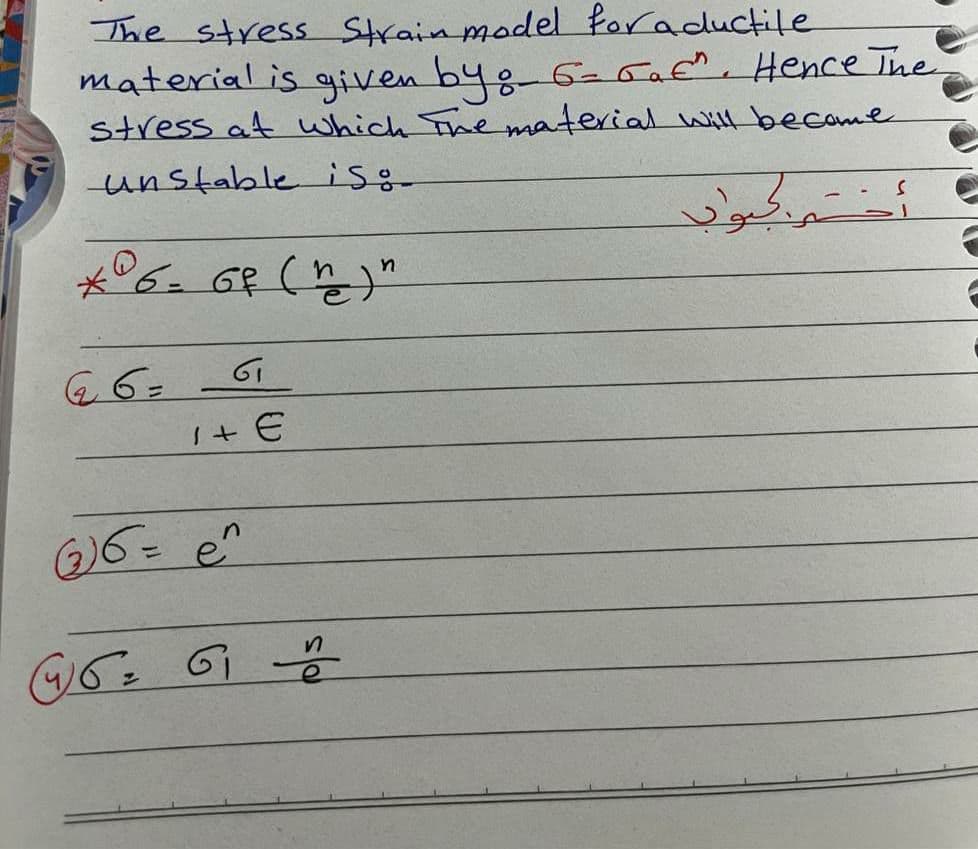 The stress Strain model for a ductile
material is given by:- σ = σₐ ϵⁿ. Hence The
stress at which The material will become
unstable is:-
أختر الجواب
* ① σ = σf (n/e)ⁿ
② σ = σ₁ / 1 + ϵ
③ σ = eⁿ
④ σ = σ₁ n/e